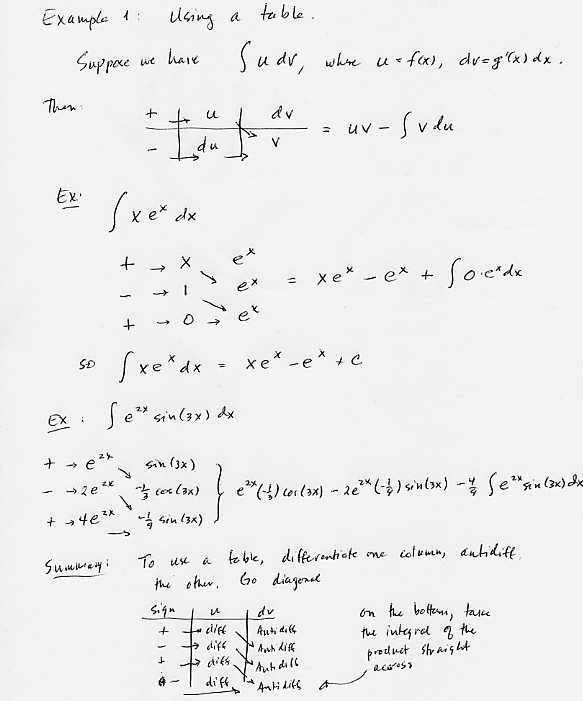 Example 1: Using a table.
Suppose we have ∫ u dv, where u = f(x), dv = g'(x) dx.
Then:
+ → u dv
- → du → v = uv - ∫ v du
Ex:
∫ x eˣ dx
+ → x eˣ
- → 1 eˣ = xeˣ - eˣ + ∫ 0·eˣ dx
+ → 0 → eˣ
so ∫ xeˣ dx = xeˣ - eˣ + c
Ex: ∫ e²ˣ sin(3x) dx
+ → e²ˣ sin(3x)
- → 2e²ˣ -1/3 cos(3x) } e²ˣ(-1/3) cos(3x) - 2e²ˣ(-1/9) sin(3x) - 4/9 ∫ e²ˣ sin(3x) dx
+ → 4e²ˣ → -1/9 sin(3x)
Summary: To use a table, differentiate one column, antidiff.
the other. Go diagonal
sign u dv
+ → diff Antidiff
- → diff Antidiff
+ → diff Antidiff
- diff → Antidiff
on the bottom, take
the integral of the
product straight
across